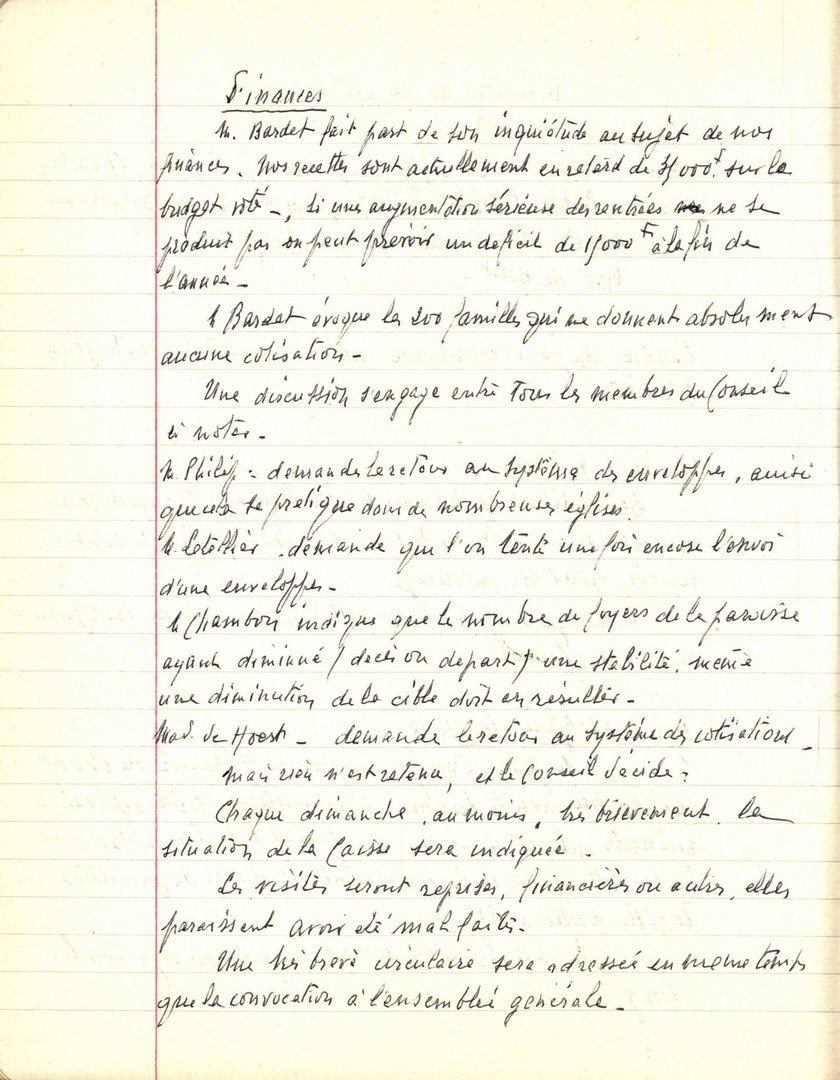 Finances
M. Bardet fait part de son inquiétude au sujet de nos
finances. Nos recettes sont actuellement en retard de F. sur le
budget voté -, si une augmentation sérieuse des rentrées ne se
produit pas on peut prévoir un deficit de F à la fin de
l'année -
M Bardet évoque les 200 familles qui ne donnent absolument
aucune cotisation -
Une discussion s'engage entre tous les membres du Conseil
à noter -
M. Philip : demande le retour au système des enveloppes, ainsi
que cela se pratique dans de nombreuses églises.
M. Letellier . demande que l'on tente une fois encore l'envoi
d'une enveloppe -
M Chambon indique que le nombre de foyers de la paroisse
ayant diminué (decès ou départ) une stabilité, même
une diminution de la cible doit en résulter -
Mad. de Hoest - demande le retour au système des cotisations -
Mais rien n'est retenu, et le Conseil décide :
Chaque dimanche, au moins, très brièvement, la
situation de la Caisse sera indiquée .
Les visites seront reprises, financières ou autres, elles
paraissent avoir été mal faites -
Une très brève circulaire sera adressée en meme temps
que la convocation à l'ensemblée générale -